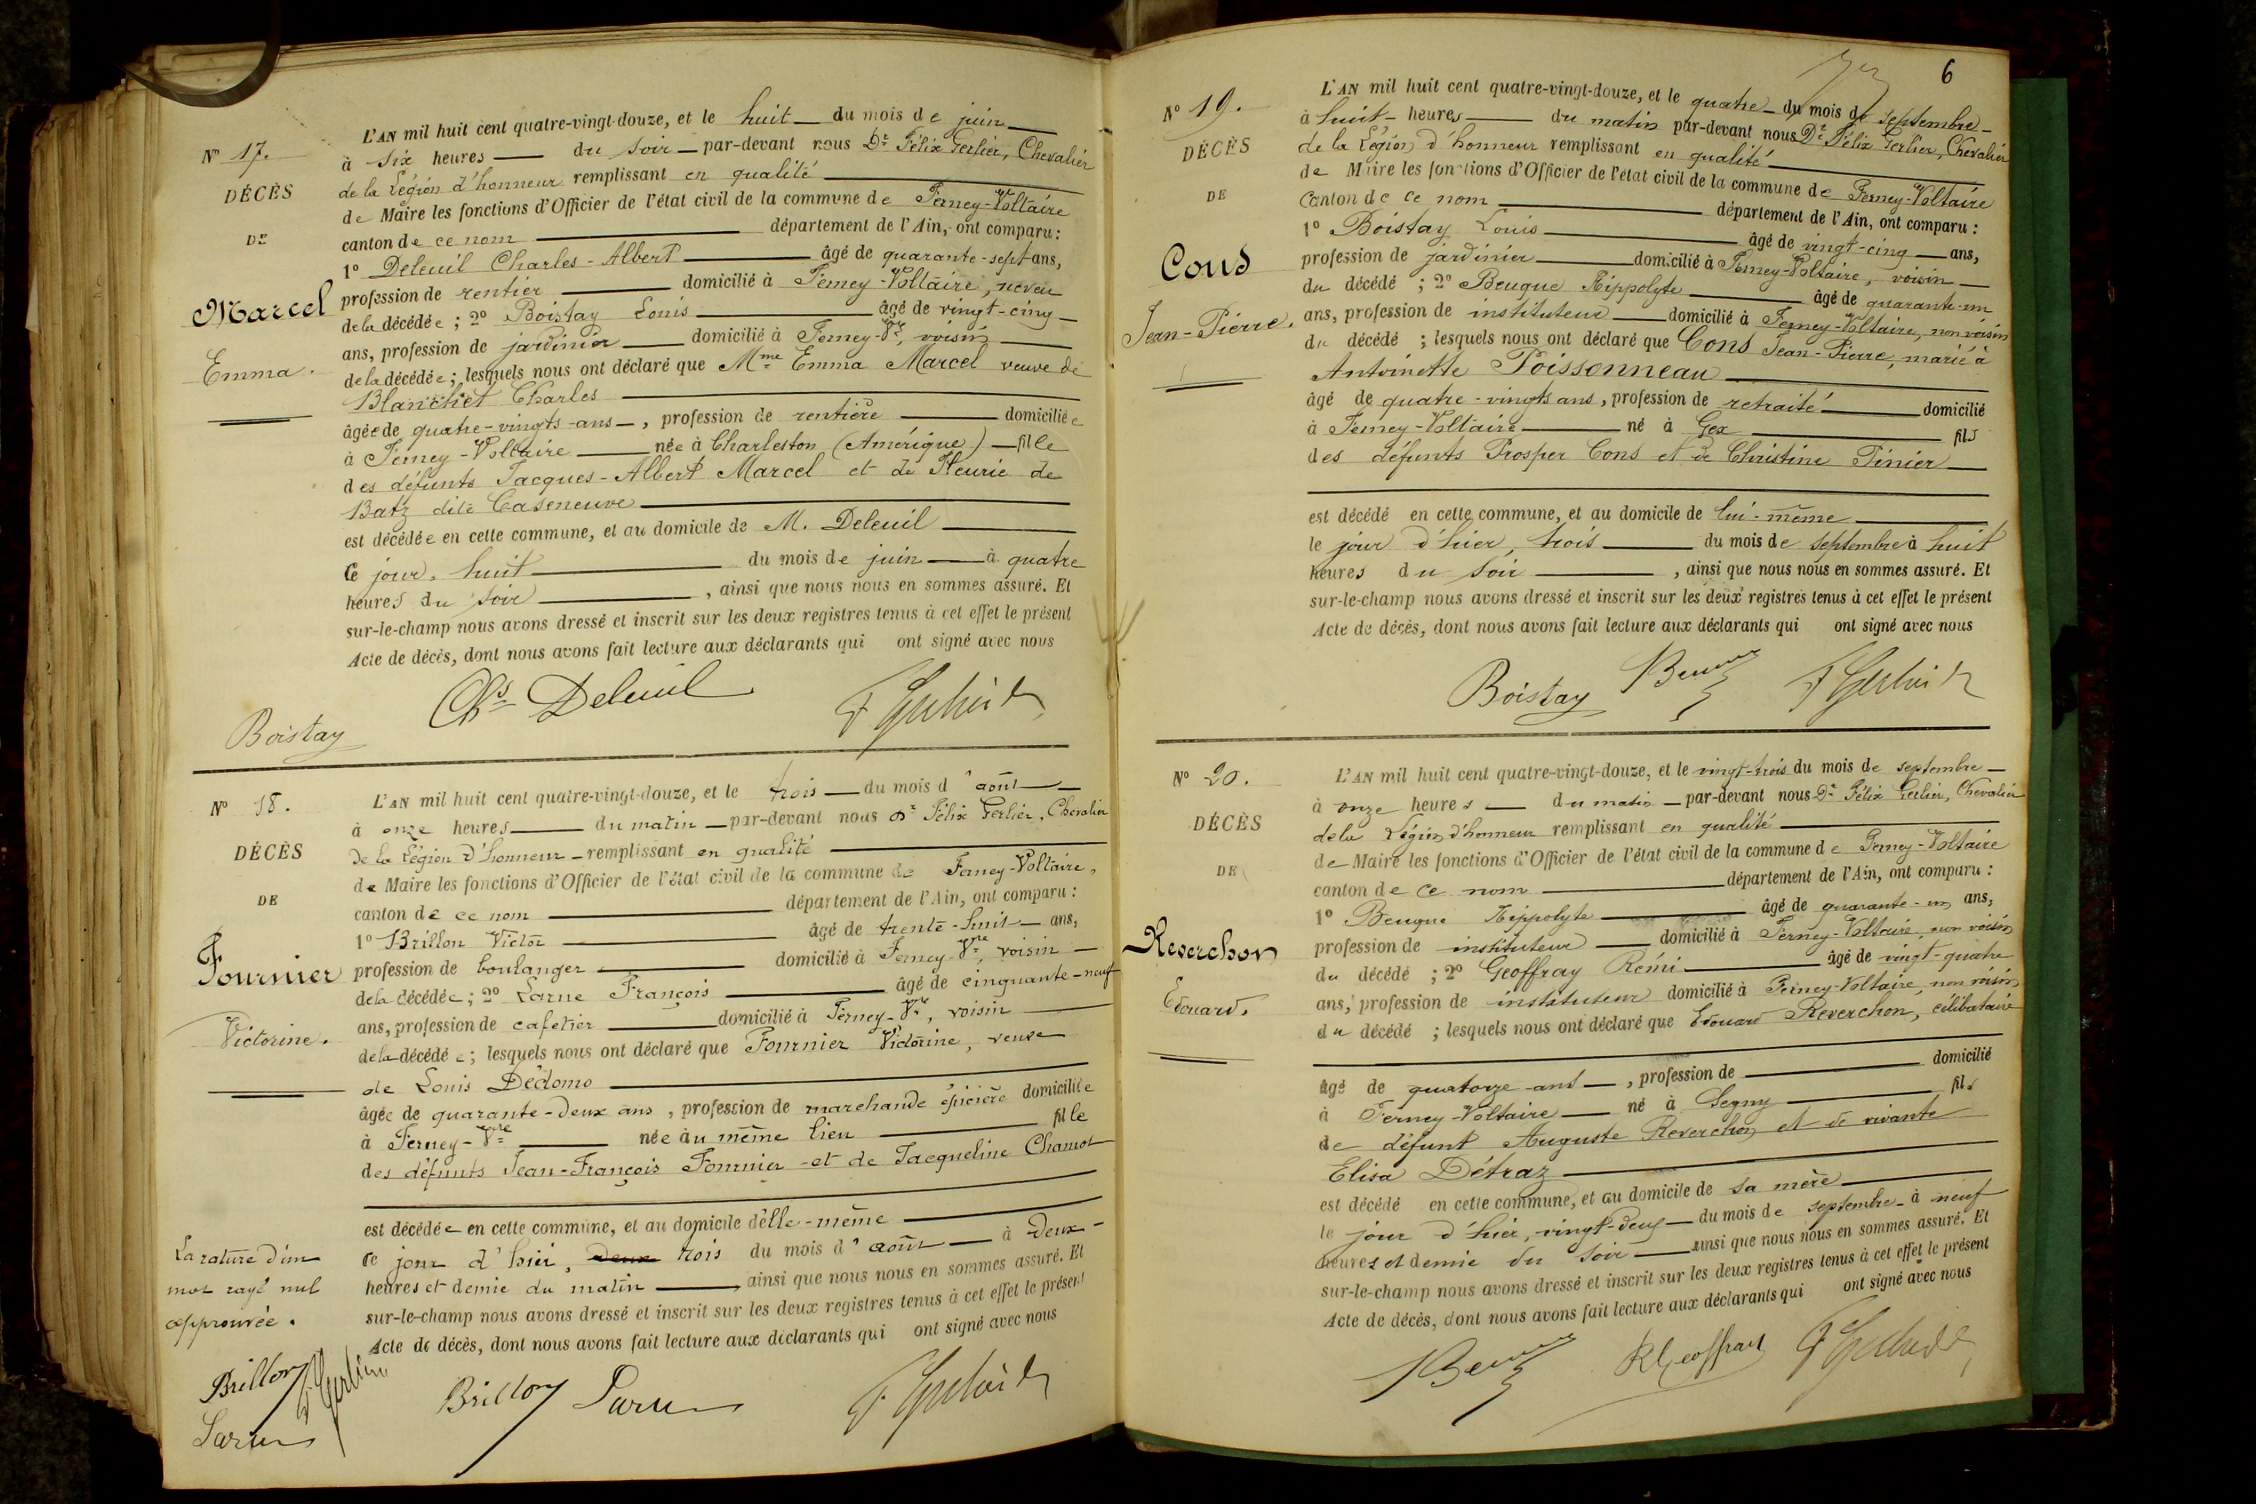 Nº 17.
DÉCÈS
DE
Marcel
Emma.
L'AN mil huit cent quatre-vingt-douze, et le huit du mois de juin
à six heures du soir par-devant nous Dr Félix Gerlier, Chevalier
de la Légion d'honneur remplissant en qualité
de Maire les fonctions d'Officier de l'état civil de la commune de Ferney-Voltaire
canton de ce nom département de l'Ain, ont comparu :
1º Deleuil Charles-Albert âgé de quarante-sept ans,
profession de rentier domicilié à Ferney-Voltaire, neveu
de la décédée ; 2º Boistay Louis âgé de vingt-cinq
ans, profession de jardinier domicilié à Ferney-Vre, voisin
de la décédée ; lesquels nous ont déclaré que Mme Emma Marcel veuve de
Blanchet Charles
âgée de quatre-vingts ans, profession de rentière domiciliée
à Ferney-Voltaire née à Charleston (Amérique) fille
des défunts Jacques-Albert Marcel et de Fleurie de
Batz dite Caseneuve
est décédée en cette commune, et au domicile de M. Deleuil
ce jour, huit du mois de juin à quatre
heures du soir, ainsi que nous nous en sommes assuré. Et
sur-le-champ nous avons dressé et inscrit sur les deux registres tenus à cet effet le présent
Acte de décès, dont nous avons fait lecture aux déclarants qui ont signé avec nous
Chs Deleuil
F Gerlier
Boistay
Nº 18.
DÉCÈS
DE
Fournier
Victorine.
L'AN mil huit cent quatre-vingt-douze, et le trois du mois d'août
à onze heures du matin par-devant nous Dr Félix Gerlier, Chevalier
de la Légion d'honneur remplissant en qualité
de Maire les fonctions d'Officier de l'état civil de la commune de Ferney-Voltaire,
canton de ce nom département de l'Ain, ont comparu :
1º Brillon Victor âgé de trente-huit ans,
profession de boulanger domicilié à Ferney-Vre, voisin
de la décédée ; 2º Larue François âgé de cinquante-neuf
ans, profession de cafetier domicilié à Ferney-Vre, voisin
de la décédée ; lesquels nous ont déclaré que Fournier Victorine, veuve
de Louis Dédomo
âgée de quarante-deux ans, profession de marchande épicière domiciliée
à Ferney-Vre née au même lieu fille
des défunts Jean-François Fournier et de Jacqueline Chamot
est décédée en cette commune, et au domicile d'elle-même
ce jour d'hier, deux trois du mois d'août à deux
heures et demie du matin ainsi que nous nous en sommes assuré. Et
sur-le-champ nous avons dressé et inscrit sur les deux registres tenus à cet effet le présent
Acte de décès, dont nous avons fait lecture aux déclarants qui ont signé avec nous
La rature d'un
mot rayé nul
approuvée.
Brillon F Gerlier
Larue
Brillon Larue F Gerlier
6
Nº 19.
DÉCÈS
DE
Cons
Jean-Pierre.
L'AN mil huit cent quatre-vingt-douze, et le quatre du mois de septembre
à huit heures du matin par-devant nous Dr Félix Gerlier, Chevalier
de la Légion d'honneur remplissant en qualité
de Maire les fonctions d'Officier de l'état civil de la commune de Ferney-Voltaire
canton de ce nom département de l'Ain, ont comparu :
1º Boistay Louis âgé de vingt-cinq ans,
profession de jardinier domicilié à Ferney-Voltaire, voisin
du décédé ; 2º Beuque Hippolyte âgé de quarante-un
ans, profession de instituteur domicilié à Ferney-Voltaire, non voisin
du décédé ; lesquels nous ont déclaré que Cons Jean-Pierre, marié à
Antoinette Poissonneau
âgé de quatre-vingts ans, profession de retraité domicilié
à Ferney-Voltaire né à Gex fils
des défunts Prosper Cons et de Christine Pinier
est décédé en cette commune, et au domicile de lui-même
le jour d'hier, trois du mois de septembre à huit
heures du soir, ainsi que nous nous en sommes assuré. Et
sur-le-champ nous avons dressé et inscrit sur les deux registres tenus à cet effet le présent
Acte de décès, dont nous avons fait lecture aux déclarants qui ont signé avec nous
Boistay Beuque F Gerlier
Nº 20.
DÉCÈS
DE
Reverchon
Edouard.
L'AN mil huit cent quatre-vingt-douze, et le vingt-trois du mois de septembre
à onze heures du matin par-devant nous Dr Félix Gerlier, Chevalier
de la Légion d'honneur remplissant en qualité
de Maire les fonctions d'Officier de l'état civil de la commune de Ferney-Voltaire
canton de ce nom département de l'Ain, ont comparu :
1º Beuque Hippolyte âgé de quarante-un ans,
profession de instituteur domicilié à Ferney-Voltaire, non voisin
du décédé ; 2º Geoffray Rémi âgé de vingt-quatre
ans, profession de instituteur domicilié à Ferney-Voltaire, non voisin
du décédé ; lesquels nous ont déclaré que Edouard Reverchon, célibataire
âgé de quatorze ans, profession de domicilié
à Ferney-Voltaire né à Segny fils
de défunt Auguste Reverchon et de vivante
Elisa Détraz
est décédé en cette commune, et au domicile de sa mère
le jour d'hier, vingt-deux du mois de septembre à neuf
heures et demie du soir ainsi que nous nous en sommes assuré. Et
sur-le-champ nous avons dressé et inscrit sur les deux registres tenus à cet effet le présent
Acte de décès, dont nous avons fait lecture aux déclarants qui ont signé avec nous
Beuque R Geoffray F Gerlier